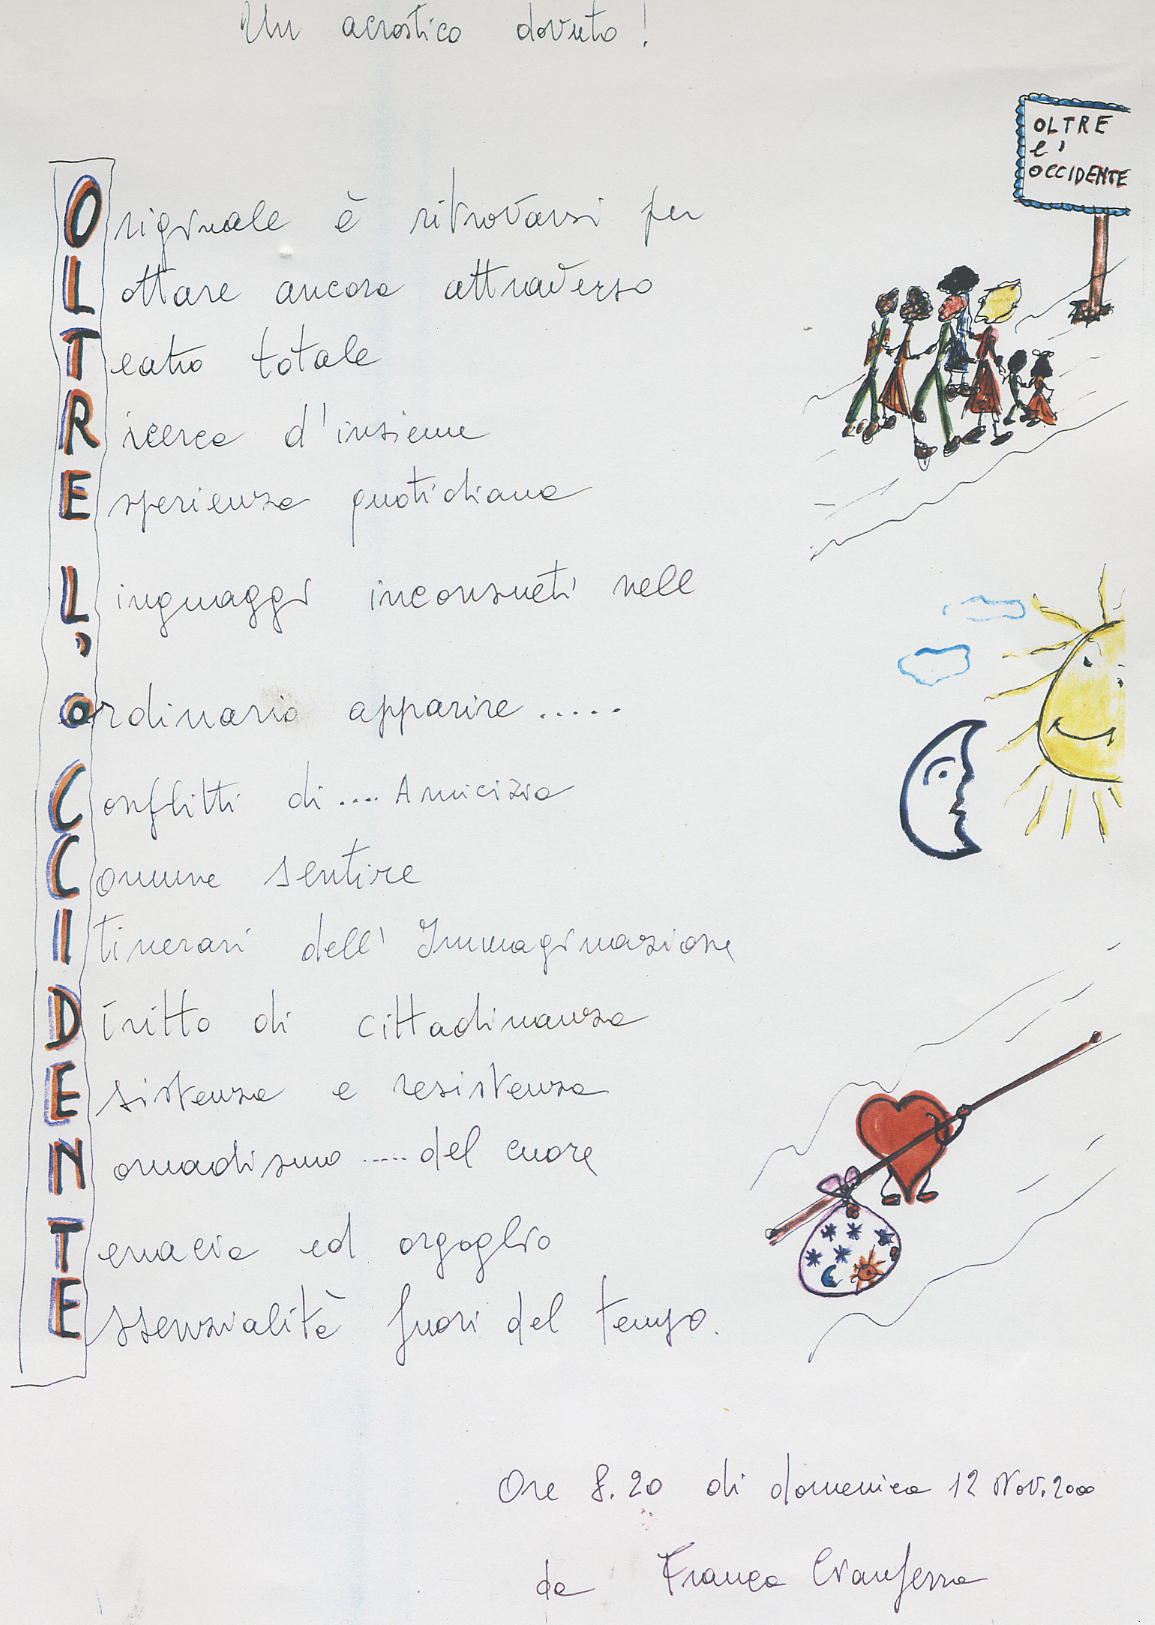 Un acrostico dovuto!
OLTRE
l'
OCCIDENTE
Originale è ritrovarsi per
Lottare ancora attraverso
Teatro totale
Ricerca d'insieme
Esperienza quotidiana
Linguaggi inconsueti nell
'ordinario apparire .....
Conflitti di .... Amicizia
Comune sentire
Itinerari dell'Immaginazione
Diritto di cittadinanza
Esistenza e resistenza
Nomadismo ..... del cuore
Tenacia ed orgoglio
Essenzialità fuori del tempo.
Ore 8.20 di domenica 12 Nov. 2000
da Franca